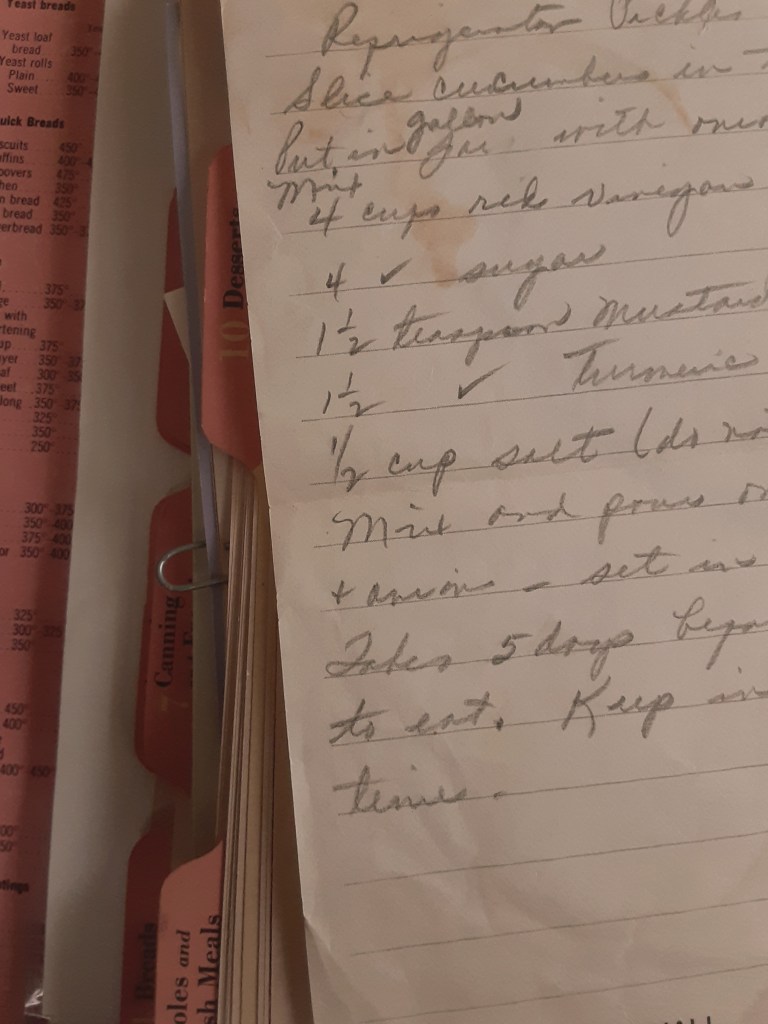 Yeast breads
Yeast loaf
bread 350°
Yeast rolls
Plain 400°
Sweet 350°
uick Breads
scuits 450°
ffins 400°-4
overs 425°
hen 350°
n bread 425°
bread 350°
erbread 350°
375°
ge 350°
with
rtening
up 375°
yer 350°
af 300°
eet 375°
long 350°
325°
350°
250°
300°-375
350°-400
375°-400
or 350°-400
325°
300°-325
350°
450°
400°
400°-450°
00°
50°
tings
10 Desserts
Canning
Breads
oles and
sh Meals
Refrigerator Pickles
Slice cucumbers in
gallon
Put in jar with
Mix
4 cups vinegar
4 ✓ sugar
1 1/2 teaspoon Mustard
1 1/2 ✓ Turmeric
1/2 cup salt (do no
Mix and pour o
+ onion - set in
Takes 5 days
to eat. Keep in
times.